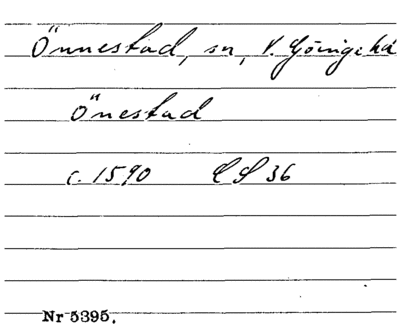 Önnestad, sn, V. Göinge hd
Önestad
c. 1590 LS 36
Nr 5395.